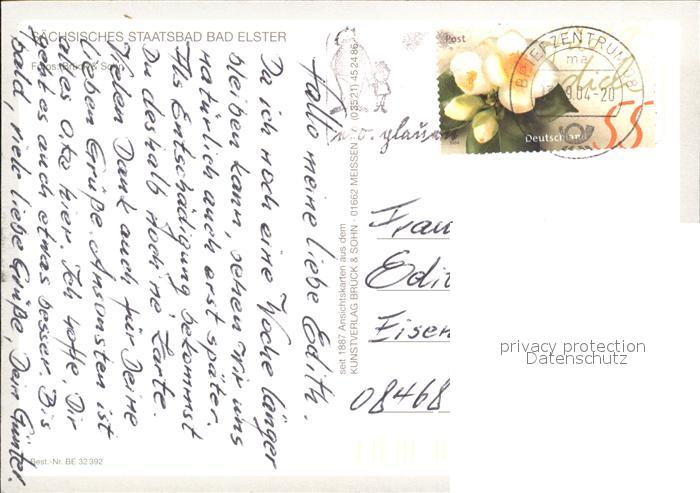 SÄCHSISCHES STAATSBAD BAD ELSTER
Fotos: Brück & Sohn
Hallo meine liebe Edith.
Da ich noch eine Woche länger
bleiben kann, sehen wir uns
natürlich auch erst später.
Als Entschädigung bekommst
Du deshalb noch 'ne Karte.
Vielen Dank auch für Deine
lieben Grüße. Ansonsten ist
alles oko hier. Ich hoffe, Dir
geht es auch etwas besser. Bis
bald, viele liebe Grüße, Dein Günter.
Best.-Nr. BE 32 392
seit 1887 Ansichtskarten aus dem
KUNSTVERLAG BRÜCK & SOHN · 01662 MEISSEN (03521) 45 24 86
Post
BRIEFZENTRUM 08
ma
9.04-20
Deutschland
55
Frau
Edit
Eisen
08468
privacy protection
Datenschutz